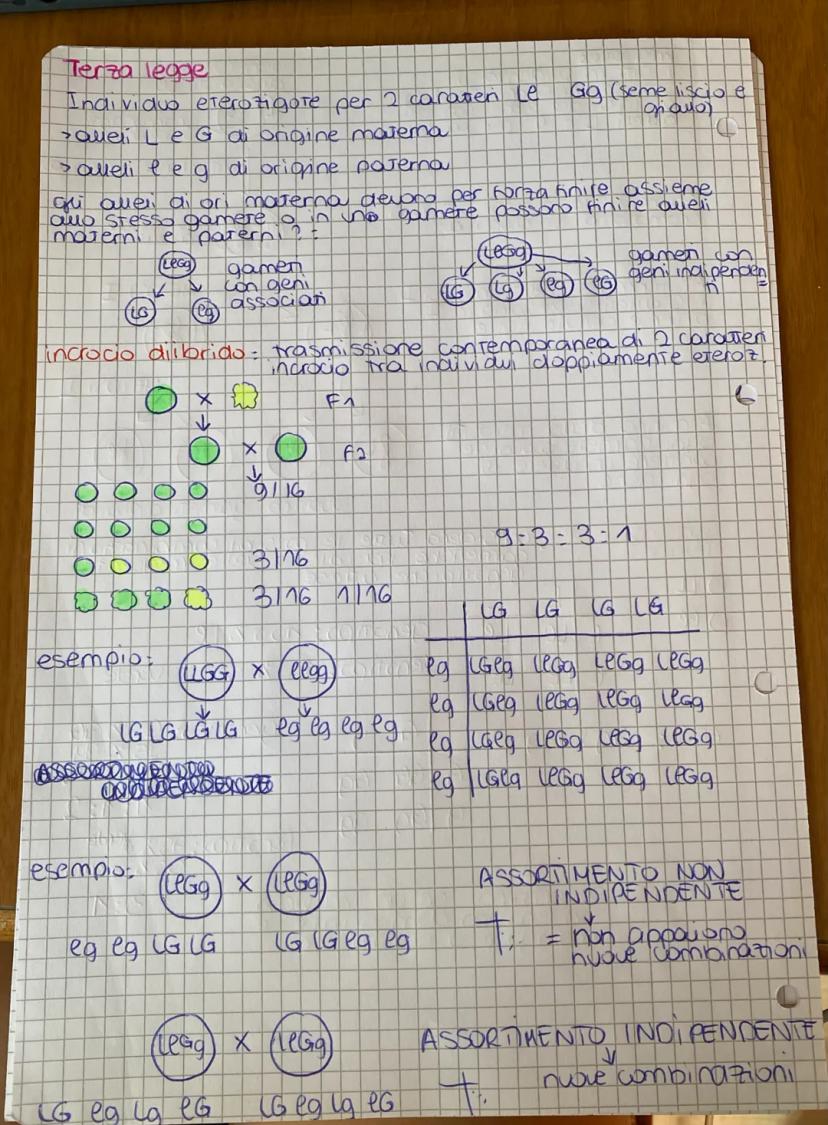 Terza legge
Individuo eterozigote per 2 caratteri Ll Gg (seme liscio e
giallo)
> alleli L e G di origine materna
> alleli l e g di origine paterna
gli alleli di ori materna devono per forza finire assieme
allo stesso gamete o in uno gamete possono finire alleli
materni e paterni? =
LlGg gameti LlGg gameti con
con geni geni indipenden
LG lg associati LG Lg lg lG ti
incrocio diibrido = trasmissione contemporanea di 2 caratteri
incrocio tra individui doppiamente eteroz.
x F1
x F2
9/16
9 = 3 = 3 = 1
3/16
3/16 1/16
LG LG LG LG
esempio: LLGG x llgg
lg LGlg LlGg LlGg LlGg
lg LGlg LlGg LlGg LlGg
LG LG LG LG lg lg lg lg
lg LGlg LlGg LlGg LlGg
lg LGlg LlGg LlGg LlGg
esempio: LlGg x LlGg
ASSORTIMENTO NON
INDIPENDENTE
lg lg LG LG LG LG lg lg
= non appaiono
nuove combinazioni
LlGg x LlGg ASSORTIMENTO INDIPENDENTE
nuove combinazioni
LG lg Lg lG LG lg Lg lG